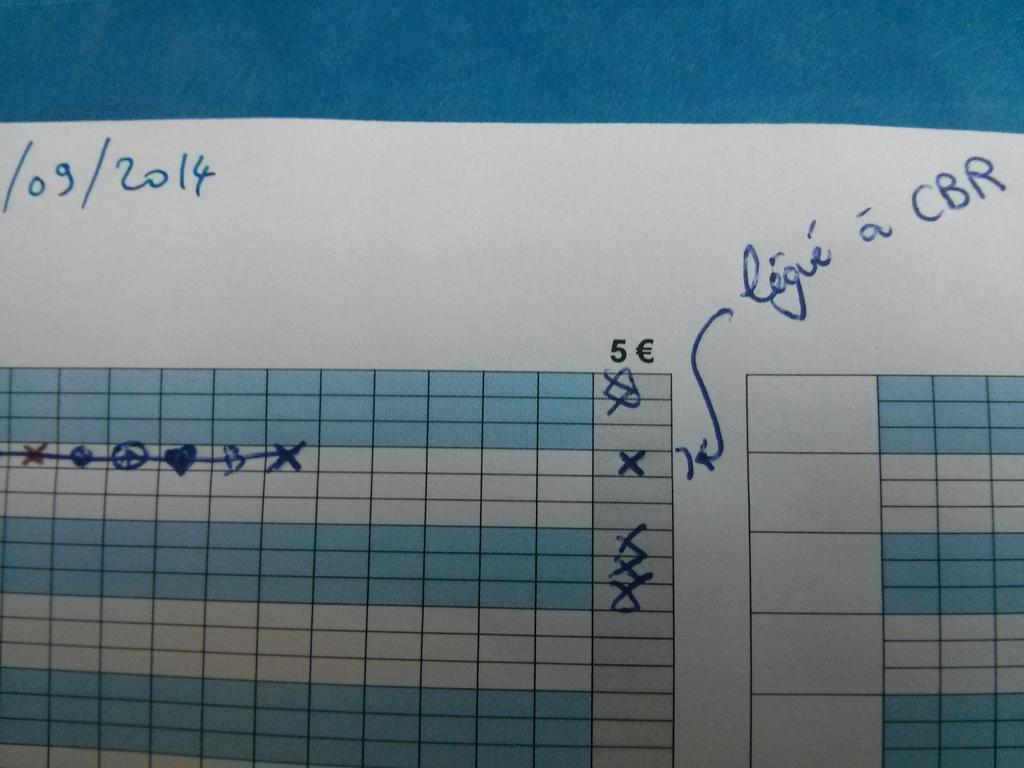 /09/2014
légué à CBR
5 €
B